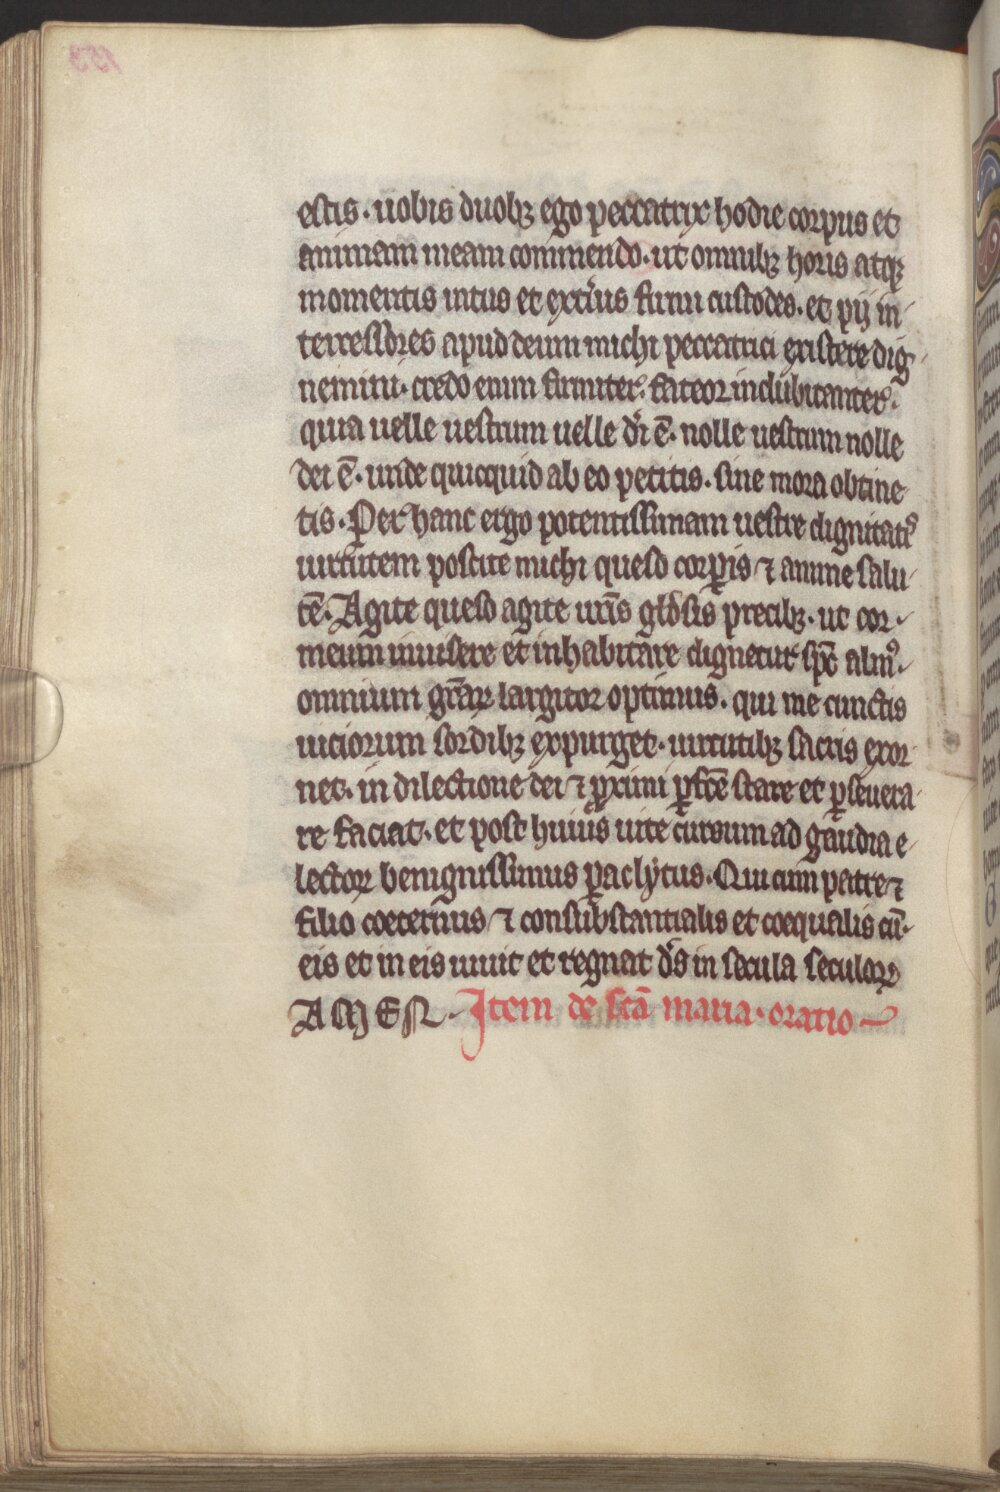 estis · uobis duobꝫ ego peccatrix hodie corpus et
animam meam commendo · ut omnibꝫ horis atqꝫ
momentis intus et exterius firmi custodes · et pij in
tercessores apud deum michi peccatrici existere dig
nemini · credo enim firmiter · fateor indubitanter ·
quia uelle uestrum uelle dī ē · nolle uestrum nolle
dei ē · unde quicquid ab eo petitis · sine mora obtine
tis · Per hanc ergo potentissimam uestre dignitatis
uirtutem poscite michi queso corꝑis ⁊ anime salu
tē · Agite queso agite ur̄is gl̄osis precibꝫ · ut cor
meum inuisere et inhabitare dignetur sp̄c almꝰ ·
omnium gr̄aꝝ largitor optimus · qui me cunctis
uiciorum sordibꝫ expurget · uirtutibꝫ sacris exor
net · in dilectione dei ⁊ ꝓximi ꝑfc̄e stare et ꝑseuera
re faciat · et post huius uite cursum ad gaudia e
lectoꝝ benignissimus ꝑaclytus · Qui cum patre ⁊
filio coeternus ⁊ consubstantialis et coequalis cū
eis et in eis uiuit et regnat d̄s in secula seculoꝝ
AMEN · Item de sc̄a maria · oratio